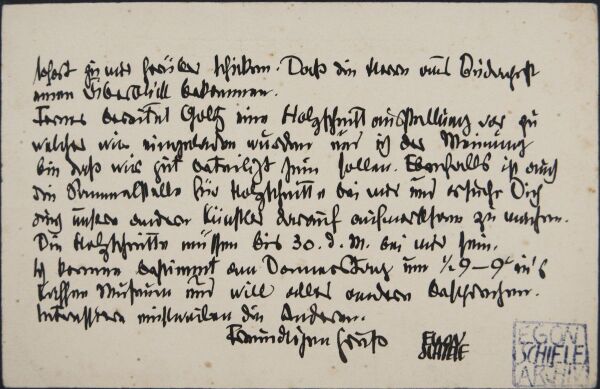 sofort zu mir herüber schicken. Daß die Herren aus Budapest
einen Überblick bekommen.
Ferner bereitet Goltz eine Holzschnittausstellung vor zu
welcher wir eingeladen wurden und ich der Meinung
bin daß wir gut beteiligt sein sollen. Ebenfalls ist auch
die Sammelstelle für Holzschnitte bei mir und ersuche Dich
auch unsere andern Künstler darauf aufmerksam zu machen.
Die Holzschnitte müssen bis 30. d. M. bei mir sein.
Ich komme bestimmt am Donnerstag um ½ 9 – 9 in's
Museum und will alles andere besprechen.
einstweilen die Anderen.
Freundlichen Gruß
EGON
SCHIELE
EGON
SCHIELE
ARCHIV